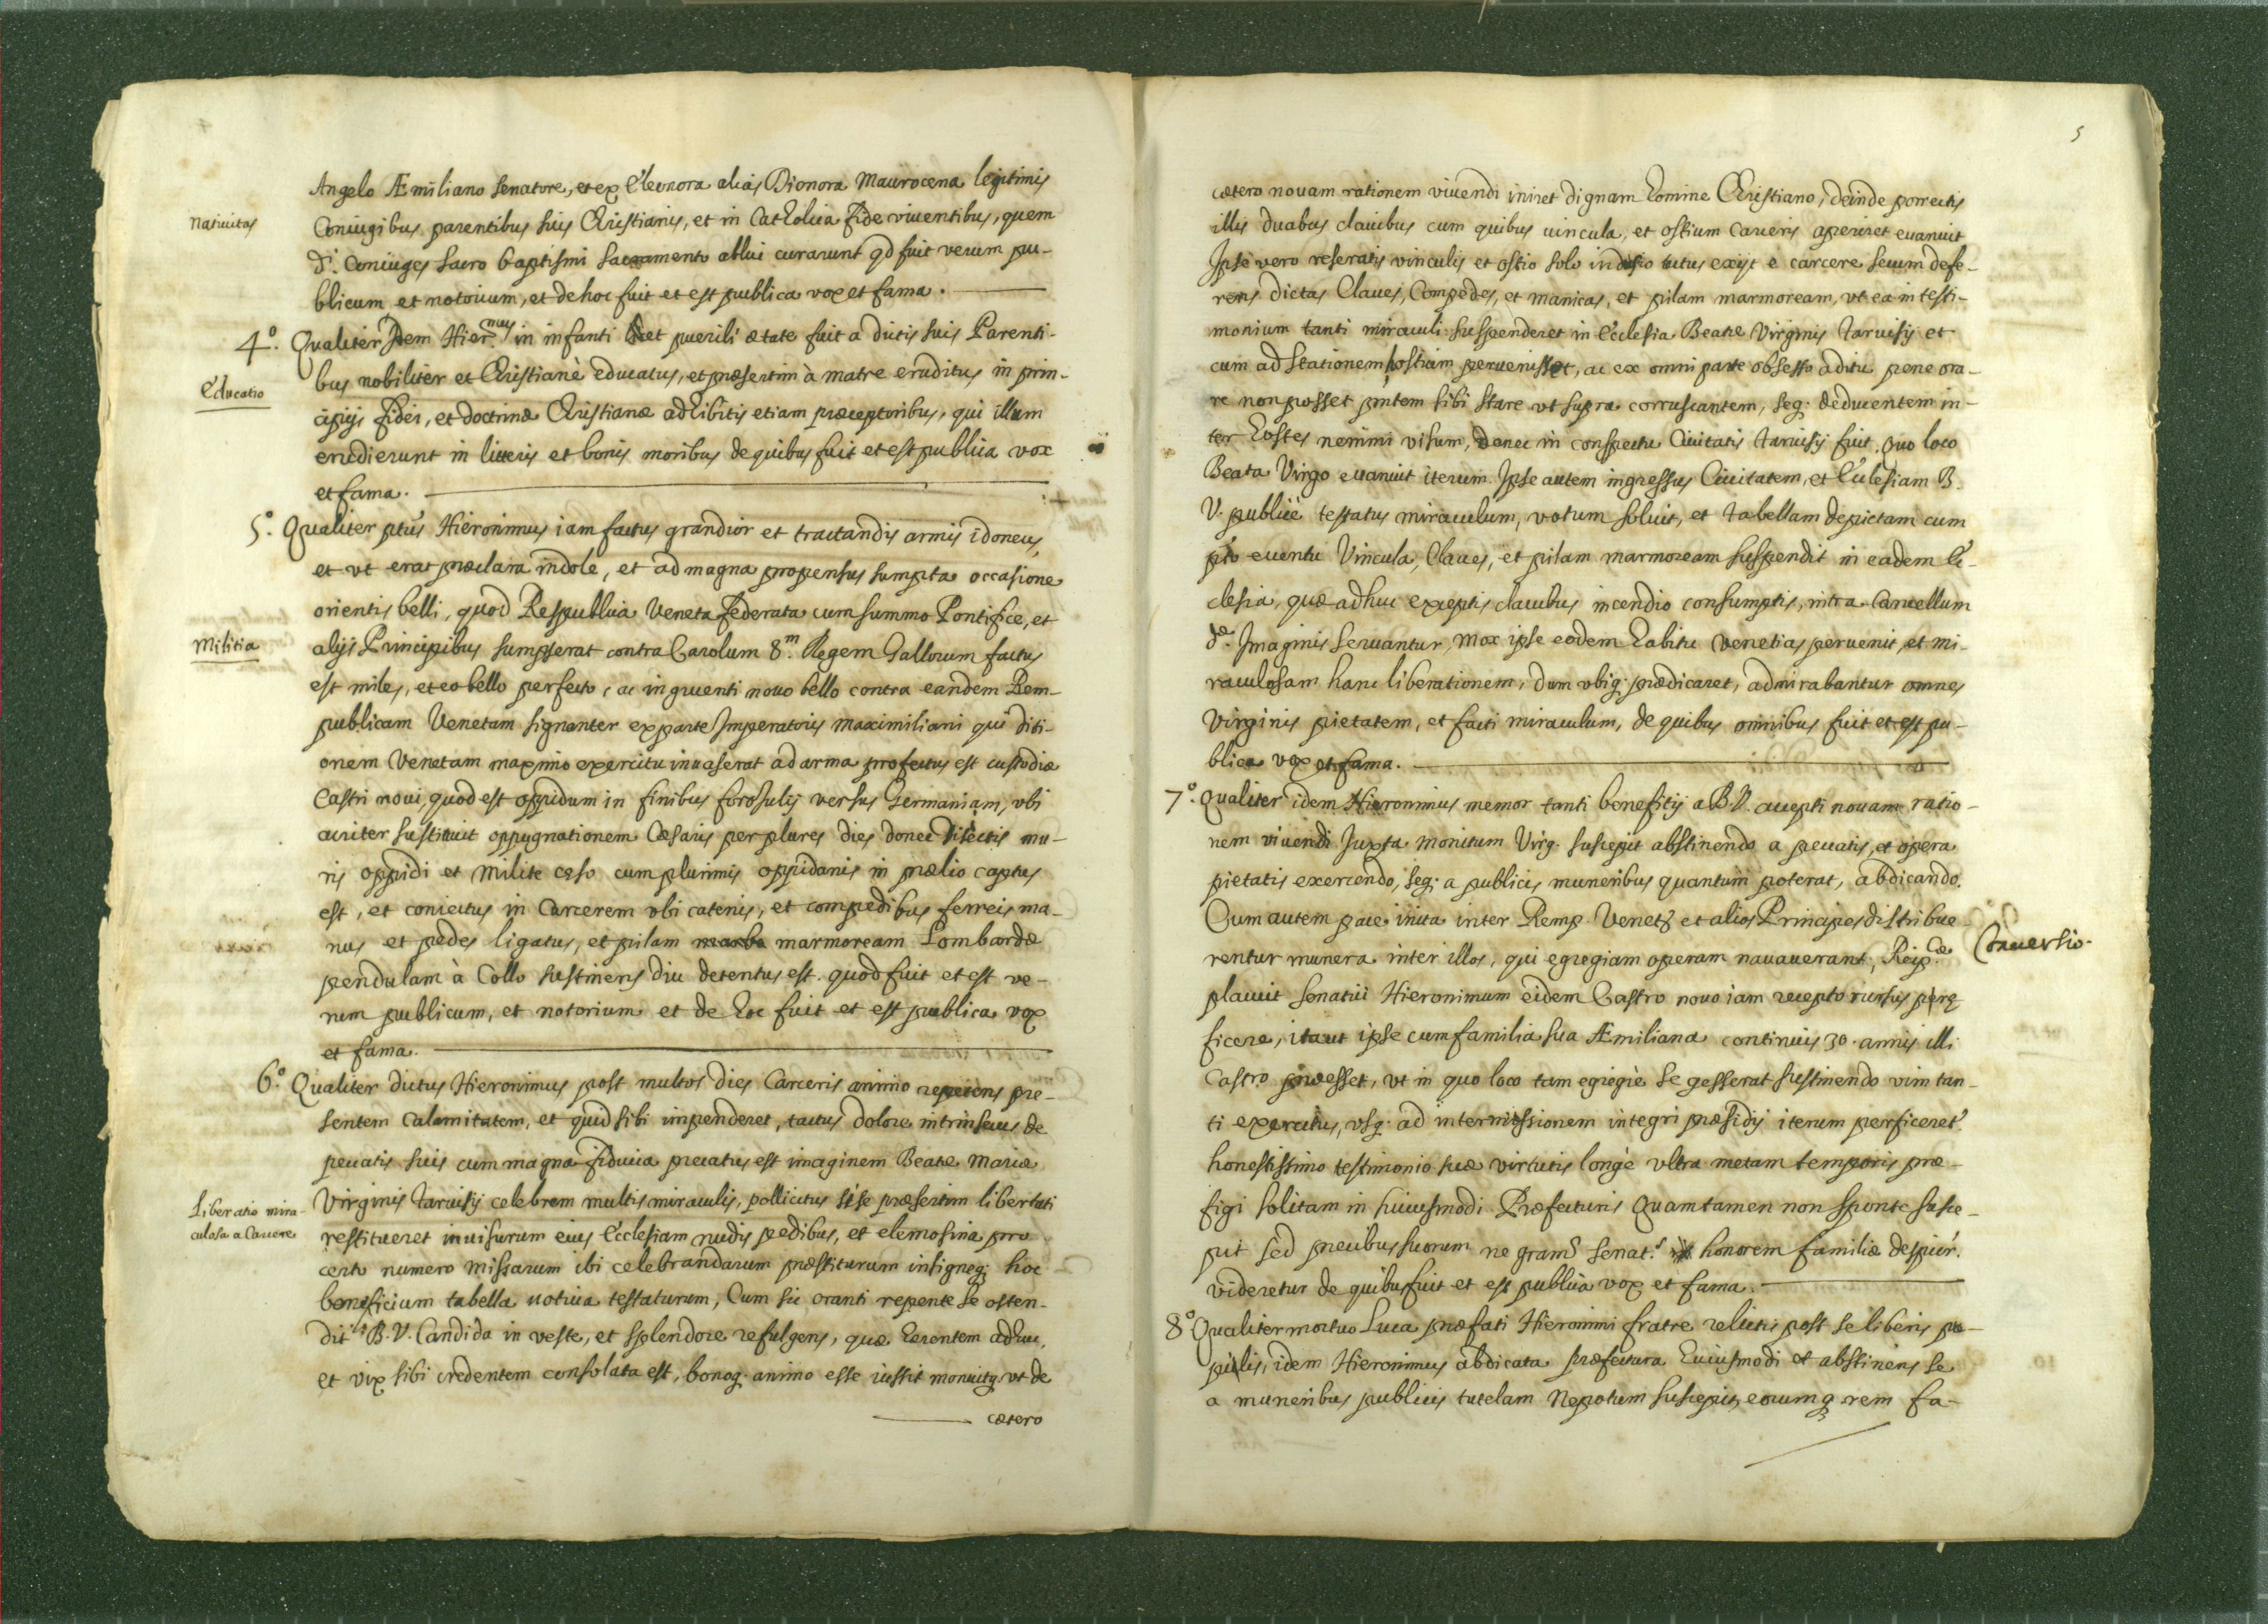 Angelo Æmiliano senatore, et ex Eleonora alias Dionora Maurocena legitimis
natiuitas
Coniugibus parentibus suis Christianis, et in Catholica Fide viuentibus, quem
di. Coniuges sacro baptismi sacramento ablui curarunt qd fuit verum pu-
blicum et notorium, et de hoc fuit et est publica vox et fama.
4.º Qualiter Idem Hier.mus in infanti et puerili ætate fuit a dictis suis Parenti-
bus nobiliter et Christianè educatus, et præsertim à matre eruditus in prin-
Educatio
cipijs fidei, et doctrinæ Christianæ adhibitis etiam præceptoribus, qui illum
erudierunt in litteris et bonis moribus de quibus fuit et est publica vox
et fama.
5.º Qualiter ptus Hieronimus iam factus grandior et tractandis armis idoneus,
et vt erat præclara indole, et ad magna propensus sumpta occasione
orientis belli, quod Respublica Veneta federata cum summo Pontifice, et
Militia
alijs Principibus sumpserat contra Carolum 8.m Regem Gallorum factus
est miles, et eo bello perfecto, ac ingruenti nouo bello contra eandem Rem-
publicam Venetam signanter ex parte Imperatoris Maximiliani qui diti-
onem Venetam maximo exercitu inuaserat ad arma profectus est custodiæ
Castri noui, quod est oppidum in finibus forosulij versus Germaniam, vbi
acriter sustinuit oppugnationem Cæsaris per plures dies donec disiectis mu-
ris oppidi et Milite cæso cum plurimis oppidanis in prælio captus
est, et coniectus in Carcerem vbi catenis, et compedibus ferreis ma-
nus et pedes ligatus, et pilam marmoream Lombardæ
pendulam à Collo sustinens diu detentus est. quod fuit et est ve-
rum publicum, et notorium et de hoc fuit et est publica vox
et fama.
6.º Qualiter dictus Hieronimus post multos dies Carceris animo repetens pre-
sentem calamitatem, et quid sibi impenderet, tactus dolore intrinsecus de
peccatis suis cum magna fiducia precatus est imaginem Beatæ Mariæ
Virginis Taruisij celebrem multis miraculis, pollicitus si se præsertim libertati
Liberatio mira-
culosa a Carcere
restitueret inuisurum eius Ecclesiam nudis pedibus, et elemosina pro
certo numero missarum ibi celebrandarum præstiturum insigneq; hoc
beneficium tabella uotiua testaturum, Cum sic oranti repente se osten-
dit B. V. Candida in veste, et splendore refulgens, quæ herentem adhuc,
et vix sibi credentem consolata est, bonoq. animo esse iussit monuitq. vt de
cætero
5
cætero nouam rationem viuendi iniret dignam homine Christiano, deinde porrectis
illis duabus clauibus cum quibus uincula, et ostium Carceris aperiret euanuit
Ipse vero reseratis vinculis et ostio solo indusio tutus exijt e carcere secum defe-
rens dictas Claues, Compedes, et manicas, et pilam marmoream, vt ea in testi-
monium tanti miraculi suspenderet in Ecclesia Beatæ Virginis Taruisij et
cum ad stationem hostium peruenisset, ac ex omni parte obsesso aditu pene ora-
re non posset pntem sibi stare vt supra corruscantem, seq. deducentem in-
ter hostes nemini visum, donec in conspectu Ciuitatis Taruisij fuit. Quo loco
Beata Virgo euanuit iterum. Ipse autem ingressus Ciuitatem, et Ecclesiam B.
V. publicè testatus miraculum, votum soluit, et tabellam depictam cum
pto euentu Vincula, Claues, et pilam marmoream suspendit in eadem Ec-
clesia, quæ adhuc exceptis clauibus incendio consumptis, intra Cancellum
dæ Imaginis seruantur, mox ipse eodem habitu Venetias peruenit, et mi-
raculosam hanc liberationem, dum vbiq. prædicaret, admirabantur omnes
Virginis pietatem, et facti miraculum, de quibus omnibus fuit et est pu-
blica vox et fama.
7.º Qualiter idem Hieronimus memor tanti beneficij a B. V. accepti nouam ratio-
nem viuendi Iuxta monitum Virg. suscepit abstinendo a peccatis, et opera
pietatis exercendo, seq. a publicis muneribus quantum poterat, abdicando.
Cum autem pace inita inter Remp. Venetā et alios Principes distribue-
Conuersio.
rentur munera inter illos, qui egregiam operam nauauerant, Reip.cæ
placuit senatui Hieronimum eidem Castro nouo iam recepto rursus
ficere, ita ut ipse cum familia sua Æmiliana continuis 30. annis illi
Castro præesset, vt in quo loco tam egregiè se gesserat sustinendo vim tan-
ti exercitus, vsq. ad internissionem integri præsidij iterum perficeret.
honestissimo testimonio suæ virtutis longè vltra metam temporis præ-
figi solitam in huiusmodi Præfecturis Quam tamen non sponte susce-
pit sed precibus suorum ne gram senat.s honorem familiæ despicer.
videretur de quibus fuit et est publica vox et fama.
8.º Qualiter mortuo Luca præfati Hieronimi fratre relictis post se liberis pu-
pillis, idem Hieronimus abdicata præfectura huiusmodi et abstinens se
a muneribus publicis tutelam Nepotum suscepit, eorumq. rem fa-